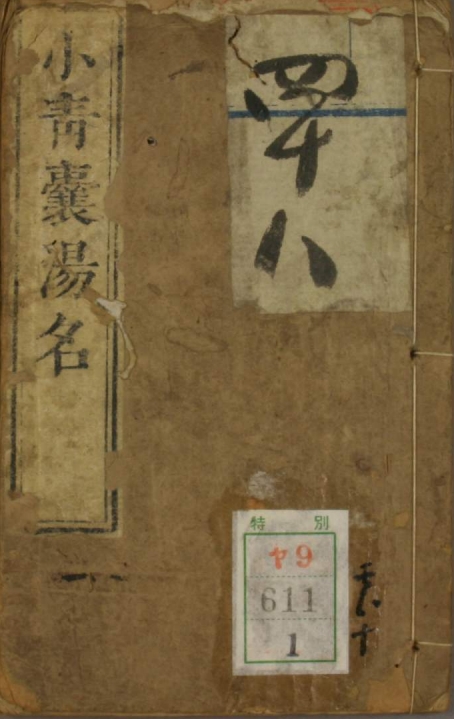 小青囊湯名
四十八
特別
ヤ9
611
1